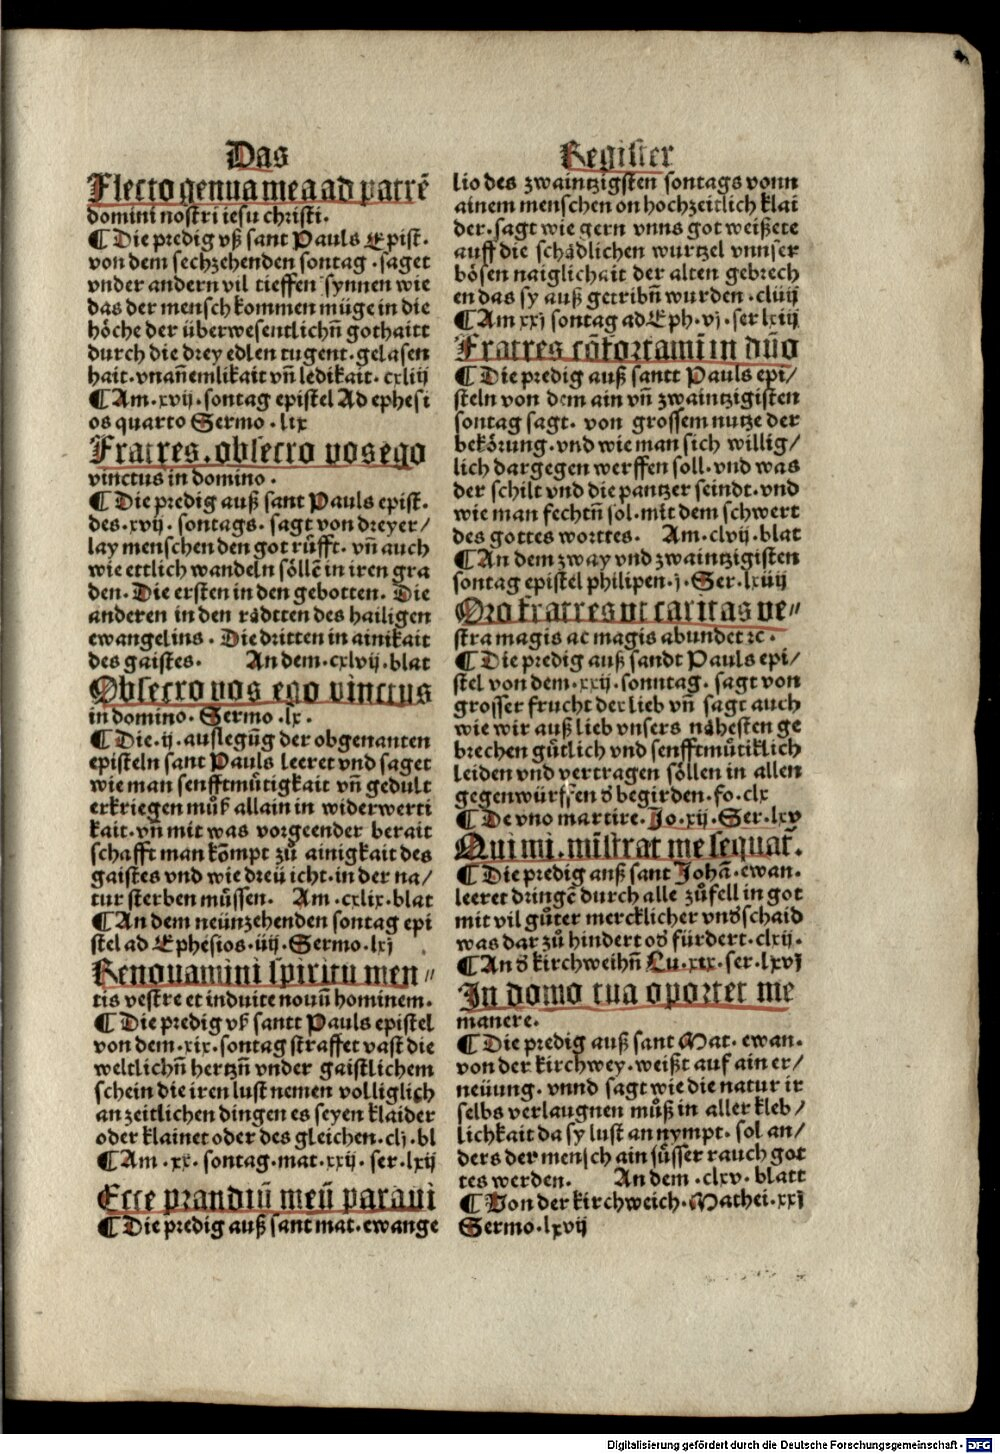 Das
Flecto genua mea ad patrē
domini nostri iesu christi.
¶ Die predig vß sant Pauls Epist.
von dem sechzehenden sontag .saget
vnder andern vil tieffen synnen wie
das der mensch kommen müge in die
höche der überwesentlichñ gothaitt
durch die drey edlen tugent. gelasen
hait. vnañemlikait vñ ledikait. cxliij
¶ Am .xvij. sontag epistel Ad ephesi
os quarto Sermo .lix
Fratres .obsecro vos ego
vinctus in domino .
¶ Die predig auß sant Pauls epist.
des .xvij. sontags. sagt von dreyer/
lay menschen den got rüfft. vñ auch
wie ettlich wandeln söllē in iren gra
den. Die ersten in den gebotten. Die
anderen in den rädtten des hailigen
ewangelins. Die dritten in ainikait
des gaistes. An dem .cxlvij. blat
Obsecro vos ego vinctus
in domino. Sermo .lx.
¶ Die .ij. auslegūg der obgenanten
episteln sant Pauls leeret vnd saget
wie man senfftmůtigkait vñ gedult
erkriegen můß allain in widerwerti
kait. vñ mit was vorgeender berait
schafft man kōmpt zů ainigkait des
gaistes vnd wie dreü icht. in der na/
tur sterben müssen. Am .cxlix. blat
¶ An dem neünzehenden sontag epi
stel ad Ephesios .iiij. Sermo .lxj
Renouamini spiritu men=
tis vestre et induite nouū hominem.
¶ Die predig vß santt Pauls epistel
von dem .xix. sontag straffet vast die
weltlichñ hertzñ vnder gaistlichem
schein die iren lust nemen volliglich
an zeitlichen dingen es seyen klaider
oder klainet oder des gleichen. clj. bl
¶ Am .xx. sontag. mat. xxij. ser. lxij
Ecce prandiū meū paraui
¶ Die predig auß sant mat. ewange
Register
lio des zwaintzigsten sontags vonn
ainem menschen on hochzeitlich klai
der. sagt wie gern vnns got weißete
auff die schädlichen wurtzel vnnser
bösen naiglichait der alten gebrech
en das sy auß getribñ wurden .cliiij
¶ Am xxj sontag ad Eph. vj. ser lxiij
Fratres cōfortamī in dño
¶ Die predig auß santt Pauls epi/
steln von dem ain vñ zwaintzigisten
sontag sagt. von grossem nutze der
bekörung. vnd wie man sich willig/
lich dargegen werffen soll. vnd was
der schilt vnd die pantzer seindt. vnd
wie man fechtñ sol. mit dem schwert
des gottes worttes. Am .clvij. blat
¶ An dem zway vnd zwaintzigisten
sontag epistel philipen. j. Ser. lxiiij
Oro fratres vt caritas ve=
stra magis ac magis abundet ꝛc.
¶ Die predig auß sandt Pauls epi/
stel von dem .xxij. sonntag. sagt von
grosser frucht der lieb vñ sagt auch
wie wir auß lieb vnsers nähesten ge
brechen gůtlich vnd senfftmůtiklich
leiden vnd vertragen söllen in allen
gegenwürffen ð begirden. fo. clx
¶ De vno martire. Jo. xij. Ser. lxv
Qui mi. mīstrat me sequat̄.
¶ Die predig auß sant Johā. ewan.
leeret dringē durch alle zůfell in got
mit vil gůter mercklicher vnðschaid
was dar zů hindert oð fürdert. clxij.
¶ An ð kirchweihñ Lu. xix. ser. lxvj
In domo tua oportet me
manere.
¶ Die predig auß sant Mat. ewan.
von der kirchwey. weißt auf ain er/
neüung. vnnd sagt wie die natur ir
selbs verlaugnen můß in aller kleb/
lichkait da sy lust an nympt. sol an/
ders der mensch ain süsser rauch got
tes werden. An dem .clxv. blatt
¶ Von der kirchweich. Mathei. xxj
Sermo. lxvij
Digitalisierung gefördert durch die Deutsche Forschungsgemeinschaft - DFG